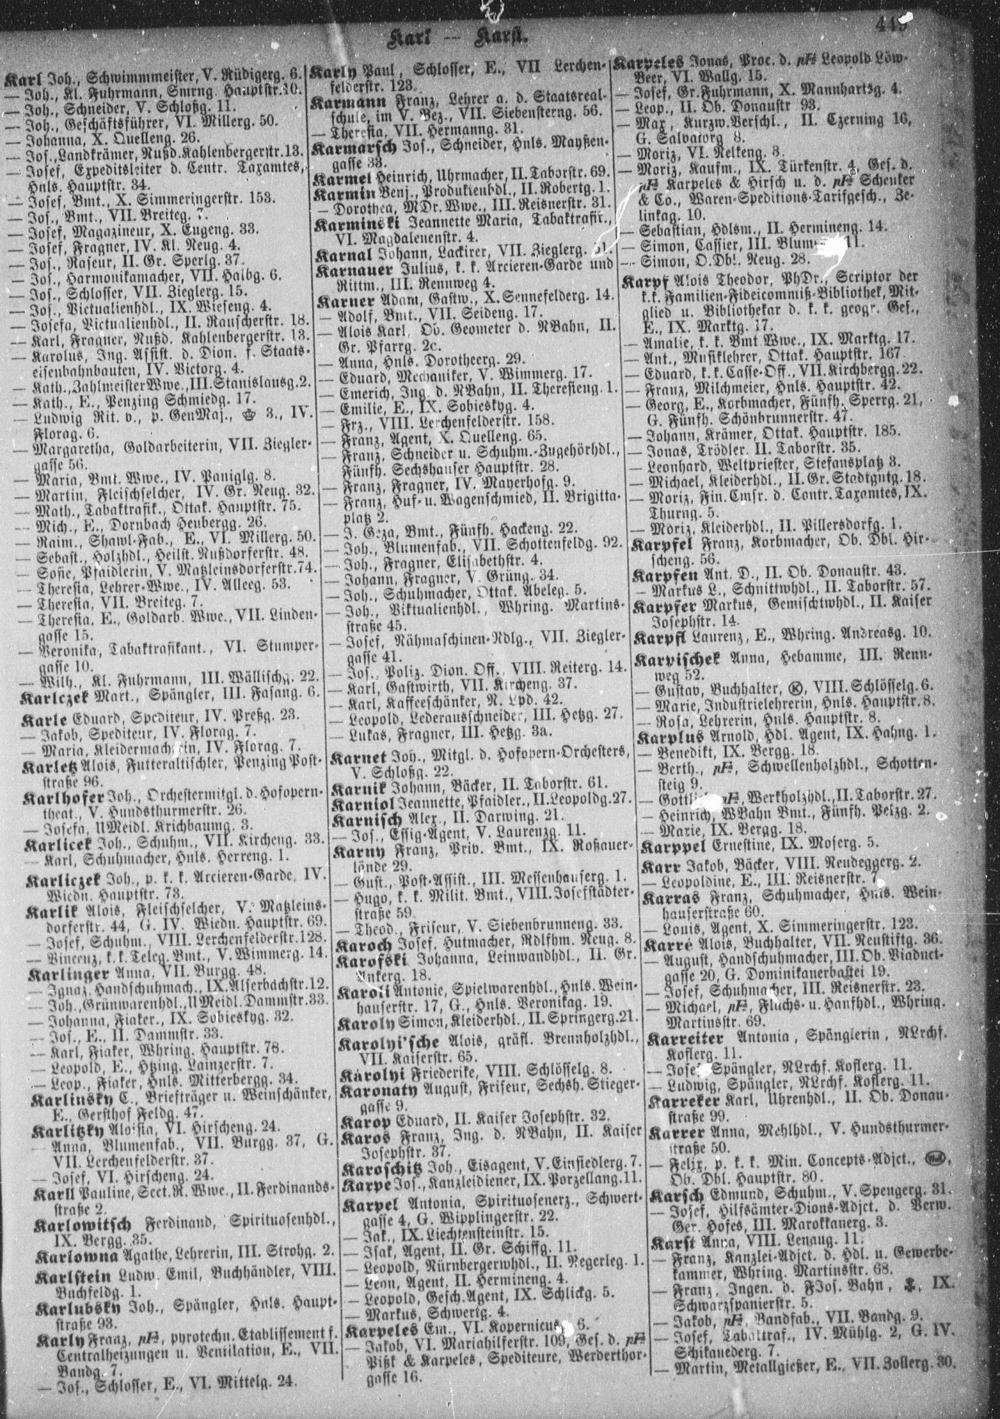 Karl — Karst.
449
Karl Joh., Schwimmmeister, V. Rüdigerg. 6.
— Joh., Kl. Fuhrmann, Smrng. Hauptstr. 10.
— Joh., Schneider, V. Schloßg. 11.
— Joh., Geschäftsführer, VI. Millerg. 50.
— Johanna, X. Quelleng. 26.
— Jos., Landkrämer, Nußd. Kahlenbergerstr. 13.
— Josef, Expeditsleiter d. Centr. Taxamtes,
Hnls. Hauptstr. 34.
— Josef, Bmt., X. Simmeringerstr. 153.
— Jos., Bmt., VII. Breiteg. 7.
— Josef, Magazineur, X. Eugeng. 33.
— Josef, Fragner, IV. Kl. Neug. 4.
— Jos., Raseur, II. Gr. Sperlg. 37.
— Jos., Harmonikamacher, VII. Halbg. 6.
— Jos., Schlosser, VII. Zieglerg. 15.
— Jos., Victualienhdl., IX. Wieseng. 4.
— Josefa, Victualienhdl., II. Rauscherstr. 18.
— Karl, Fragner, Nußd. Kahlenbergerstr. 13.
— Karolus, Ing. Assist. d. Dion. f. Staats-
eisenbahnbauten, IV. Victorg. 4.
— Kath., Zahlmeister Wwe., III. Stanislausg. 2.
— Kath., E., Penzing Schmiedg. 17.
— Ludwig Rit. v., p. GenMaj., 3., IV.
Florag. 6.
— Margaretha, Goldarbeiterin, VII. Ziegler-
gasse 56.
— Maria, Bmt. Wwe., IV. Paniglg. 8.
— Martin, Fleischselcher, IV. Gr. Neug. 32.
— Math., Tabaktrafik., Ottak. Hauptstr. 75.
— Mich., E., Dornbach Heubergg. 26.
— Raim., Shawl-Fab., E., VI. Millerg. 50.
— Sebast., Holzhdl., Heilst. Nußdorferstr. 48.
— Sofie, Pfaidlerin, V. Matzleinsdorferstr. 74.
— Theresia, Lehrer-Wwe., IV. Alleeg. 53.
— Theresia, VII. Breiteg. 7.
— Theresia, E., Goldarb. Wwe., VII. Linden-
gasse 15.
— Veronika, Tabaktrafikant., VI. Stumper-
gasse 10.
— Wilh., Kl. Fuhrmann, III. Wällischg. 22.
Karlczek Mart., Spängler, III. Fasang. 6.
Karle Eduard, Spediteur, IV. Preßg. 23.
— Jakob, Spediteur, IV. Florag. 7.
— Maria, Kleidermacherin, IV. Florag. 7.
Karletz Alois, Futteraltischler, Penzing Post-
straße 96.
Karlhofer Joh., Orchestermitgl. d. Hofopern-
theat., V. Hundsthurmerstr. 26.
— Josefa, UMeidl. Krichbaumg. 3.
Karlicek Joh., Schuhm., VII. Kircheng. 33.
— Karl, Schuhmacher, Hnls. Herreng. 1.
Karliczek Joh., p. k. k. Arcieren-Garde, IV.
Wiedn. Hauptstr. 73.
Karlik Alois, Fleischselcher, V. Matzleins-
dorferstr. 44, G. IV. Wiedn. Hauptstr. 69.
— Josef, Schuhm., VIII. Lerchenfelderstr. 128.
— Vincenz, k. k. Teleg. Bmt., V. Wimmerg. 14.
Karlinger Anna, VII. Burgg. 48.
— Ignaz, Handschuhmach., IX. Alserbachstr. 12.
— Joh., Grünwarenhdl., UMeidl. Dammstr. 33.
— Johanna, Fiaker., IX. Sobieskyg. 32.
— Jos., E., II. Dammstr. 33.
— Karl, Fiaker, Whring. Hauptstr. 78.
— Leopold, E., Htzing. Lainzerstr. 7.
— Leop., Fiaker, Hnls. Mitterbergg. 34.
Karlinsky C., Briefträger u. Weinschänker,
E., Gersthof Feldg. 47.
Karlitzky Aloisia, VI. Hirscheng. 24.
— Anna, Blumenfab., VII. Burgg. 37, G.
VII. Lerchenfelderstr. 37.
— Josef, VI. Hirscheng. 24.
Karll Pauline, Sect. R. Wwe., II. Ferdinands-
straße 2.
Karlowitsch Ferdinand, Spirituosenhdl.,
IX. Bergg. 35.
Karlowna Agathe, Lehrerin, III. Strohg. 2.
Karlstein Ludw. Emil, Buchhändler, VIII.
Buchfeldg. 1.
Karlubsky Joh., Spängler, Hnls. Haupt-
straße 93.
Karly Franz, pH, pyrotechn. Etablissement f.
Centralheizungen u. Ventilation, E., VII.
Bandg. 7.
— Jos., Schlosser, E., VI. Mittelg. 24.
Karly Paul, Schlosser, E., VII Lerchen-
felderstr. 123.
Karmann Franz, Lehrer a. d. Staatsreal-
schule, im V. Bez., VII. Siebensterng. 56.
— Theresia, VII. Hermanng. 31.
Karmarsch Jos., Schneider, Hnls. Mayßen-
gasse 33.
Karmel Heinrich, Uhrmacher, II. Taborstr. 69.
Karmin Benj., Produktenhdl., II. Robertg. 1.
— Dorothea, MDr. Wwe., III. Reisnerstr. 31.
Karminski Jeannette Maria, Tabaktrafik.,
VI. Magdalenenstr. 4.
Karnal Johann, Lackirer, VII. Zieglerg. 51.
Karnauer Julius, k. k. Arcieren-Garde und
Rittm., III. Rennweg 4.
Karner Adam, Gastw., X. Sennefelderg. 14.
— Adolf, Bmt., VII. Seideng. 17.
— Alois Karl, Ob. Geometer d. NBahn, II.
Gr. Pfarrg. 2c.
— Anna, Hnls. Dorotheerg. 29.
— Eduard, Mechaniker, V. Wimmerg. 17.
— Emerich, Ing. d. NBahn, II. Theresieng. 1.
— Emilie, E., IX. Sobieskyg. 4.
— Frz., VIII. Lerchenfelderstr. 158.
— Franz, Agent, X. Quelleng. 65.
— Franz, Schneider u. Schuhm.-Zugehörhdl.,
Fünfh. Sechshauser Hauptstr. 28.
— Franz, Fragner, IV. Mayerhofg. 9.
— Franz, Huf- u. Wagenschmied, II. Brigitta-
platz 2.
— J. Geza, Bmt., Fünfh. Hackeng. 22.
— Joh., Blumenfab., VII. Schottenfeldg. 92.
— Joh., Fragner, Elisabethstr. 4.
— Johann, Fragner, V. Grüng. 34.
— Joh., Schuhmacher, Ottak. Abeleg. 5.
— Joh., Viktualienhdl., Whring. Martins-
straße 45.
— Josef, Nähmaschinen-Ndlg., VII. Ziegler-
gasse 41.
— Jos., Poliz. Dion. Off., VIII. Reiterg. 14.
— Karl, Gastwirth, VII. Kircheng. 37.
— Karl, Kaffeeschänker, N. Lpd. 42.
— Leopold, Lederausschneider, III. Hetzg. 27.
— Lukas, Fragner, III. Hetzg. 3a.
Karnet Joh., Mitgl. d. Hofopern-Orchesters,
V. Schloßg. 22.
Karnik Johann, Bäcker, II. Taborstr. 61.
Karniol Jeannette, Pfaidler., II. Leopoldg. 27.
Karnisch Alex., II. Darwing. 21.
— Jos., Essig-Agent, V. Laurenzg. 11.
Karny Franz, Priv. Bmt., IX. Roßauer-
lände 29.
— Gust., Post-Assist., III. Messenhauserg. 1.
— Hugo, k. k. Milit. Bmt., VIII. Josefstädter-
straße 59.
— Theod., Friseur, V. Siebenbrunneng. 33.
Karoch Josef, Hutmacher, Rdlfhm. Neug. 8.
Karofski Johanna, Leinwandhdl., II. Gr.
Ankerg. 18.
Karoli Antonie, Spielwarenhdl., Hnls. Wein-
hauserstr. 17, G., Hnls. Veronikag. 19.
Karoly Simon, Kleiderhdl., II. Springerg. 21.
Karolyi'sche Alois, gräfl. Brennholzhdl.,
VII. Kaiserstr. 65.
Károlyi Friederike, VIII. Schlösselg. 8.
Karonaty August, Friseur, Sechsh. Stieger-
gasse 9.
Karop Eduard, II. Kaiser Josephstr. 32.
Karos Franz, Ing. d. NBahn, II. Kaiser
Josephstr. 37.
Karoschitz Joh., Eisagent, V. Einsiedlerg. 7.
Karpe Jos., Kanzleidiener, IX. Porzellang. 11.
Karpel Antonia, Spirituosenerz., Schwert-
gasse 4, G. Wipplingerstr. 22.
— Jak., IX. Liechtensteinstr. 15.
— Isak, Agent, II. Gr. Schiffg. 11.
— Leopold, Nürnbergerwhdl., II. Negerleg. 1.
— Leon, Agent, II. Hermineng. 4.
— Leopold, Gesch. Agent, IX. Schlickg. 5.
— Markus, Schwertg. 4.
Karpeles Em., VI. Kopernicusg. 6.
— Jakob, VI. Mariahilferstr. 109, Ges. d. pH
Pißk & Karpeles, Spediteure, Werderthor-
gasse 16.
Karpeles Jonas, Proc. d. pH Leopold Löw-
Beer, VI. Wallg. 15.
— Josef, Gr. Fuhrmann, X. Mannhartsg. 4.
— Leop., II. Ob. Donaustr 93.
— Max, Kurzw. Verschl., II. Czerning 16,
G. Salvatorg 8.
— Moriz, VI. Nelkeng. 8.
— Moriz, Kaufm., IX. Türkenstr. 4, Ges. d.
pH Karpeles & Hirsch u. d. pH Schenker
& Co., Waren-Speditions-Tarifgesch., Ze-
linkag. 10.
— Sebastian, Hdlsm., II. Hermineng. 14.
— Simon, Cassier, III. 11.
— Simon, O.Dbl. Neug. 28.
Karpf Alois Theodor, PhDr., Scriptor der
k. k. Familien-Fideicommiß-Bibliothek, Mit-
glied u. Bibliothekar d. k. k. geogr. Ges.,
E., IX. Marktg. 17.
— Amalie, k. k. Bmt Wwe., IX. Marktg. 17.
— Ant., Musiklehrer, Ottak. Hauptstr. 167
— Eduard, k. k. Casse-Off., VII. Kirchbergg. 22.
— Franz, Milchmeier, Hnls. Hauptstr. 42.
— Georg, E., Korbmacher, Fünfh. Sperrg. 21,
G. Fünfh. Schönbrunnerstr. 47.
— Johann, Krämer, Ottak. Hauptstr. 185.
— Jonas, Trödler. II. Taborstr. 35.
— Leonhard, Weltpriester, Stefansplatz 3.
— Michael, Kleiderhdl., II. Gr. Stadtgutg. 18.
— Moriz, Fin. Cmsr. d. Contr. Taxamtes, IX.
Thurng. 5.
— Moriz, Kleiderhdl., II. Pillersdorfg. 1.
Karpfel Franz, Korbmacher, Ob. Dbl. Hir-
scheng. 56.
Karpfen Ant. D., II. Ob. Donaustr. 43.
— Markus L., Schnittwhdl., II. Taborstr. 57.
Karpfer Markus, Gemischtwhdl., II. Kaiser
Josephstr. 14.
Karpfl Laurenz, E., Whring. Andreasg. 10.
Karpischek Anna, Hebamme, III. Renn-
weg 52.
— Gustav, Buchhalter, K, VIII. Schlösselg. 6.
— Marie, Industrielehrerin, Hnls. Hauptstr. 8.
— Rosa, Lehrerin, Hnls. Hauptstr. 8.
Karplus Arnold, Hdl. Agent, IX. Hahng. 1.
— Benedikt, IX. Bergg. 18.
— Berth., pH, Schwellenholzhdl., Schotten-
steig 9.
— pH, Werkholzhdl., II. Taborstr. 27.
— Heinrich, WBahn Bmt., Fünfh. Pelzg. 2.
— Marie, IX. Bergg. 18.
Karppel Ernestine, IX. Moserg. 5.
Karr Jakob, Bäcker, VIII. Neudeggerg. 2.
— Leopoldine, E., III. Reisnerstr. 7
Karras Franz, Schuhmacher, Hnls. Wein-
hauserstraße 60.
— Louis, Agent, X. Simmeringerstr. 123.
Karré Alois, Buchhalter, VII. Neustiftg. 36.
— August, Handschuhmacher, III. Ob. Viaduct-
gasse 20, G. Dominikanerbastei 19.
— Josef, Schuhmacher, III. Reisnerstr. 23.
— Michael, pH, Flachs- u. Hanfhdl., Whring.
Martinsstr. 69.
Karreiter Antonia, Spänglerin, NLrchf.
Koflerg. 11.
— Josef, Spängler, NLrchf. Koflerg. 11.
— Ludwig, Spängler, NLrchf. Koflerg. 11.
Karreker Karl, Uhrenhdl., II. Ob. Donau-
straße 99.
Karrer Anna, Mehlhdl., V. Hundsthurmer-
straße 50.
— Felix, p. k. k. Min. Concepts-Adjct.,
Ob. Dbl. Hauptstr. 80.
Karsch Edmund, Schuhm., V. Spengerg. 31.
— Josef, Hilfsämter-Dions-Adjct. d. Verw.
Ger. Hofes, III. Marokkanerg. 3.
Karst Anna, VIII. Lenaug. 11.
— Franz, Kanzlei-Adjct. d. Hdl. u. Gewerbe-
kammer, Whring. Martinsstr. 68.
— Franz, Ingen. d. FJos. Bahn, IX.
Schwarzspanierstr. 5.
— Jakob, pH, Bandfab., VII. Bandg. 9.
— Josef, Tabaktraf., IV. Mühlg. 2, G. IV.
Schikanederg. 7.
— Martin, Metallgießer, E., VII. Zollerg. 30.